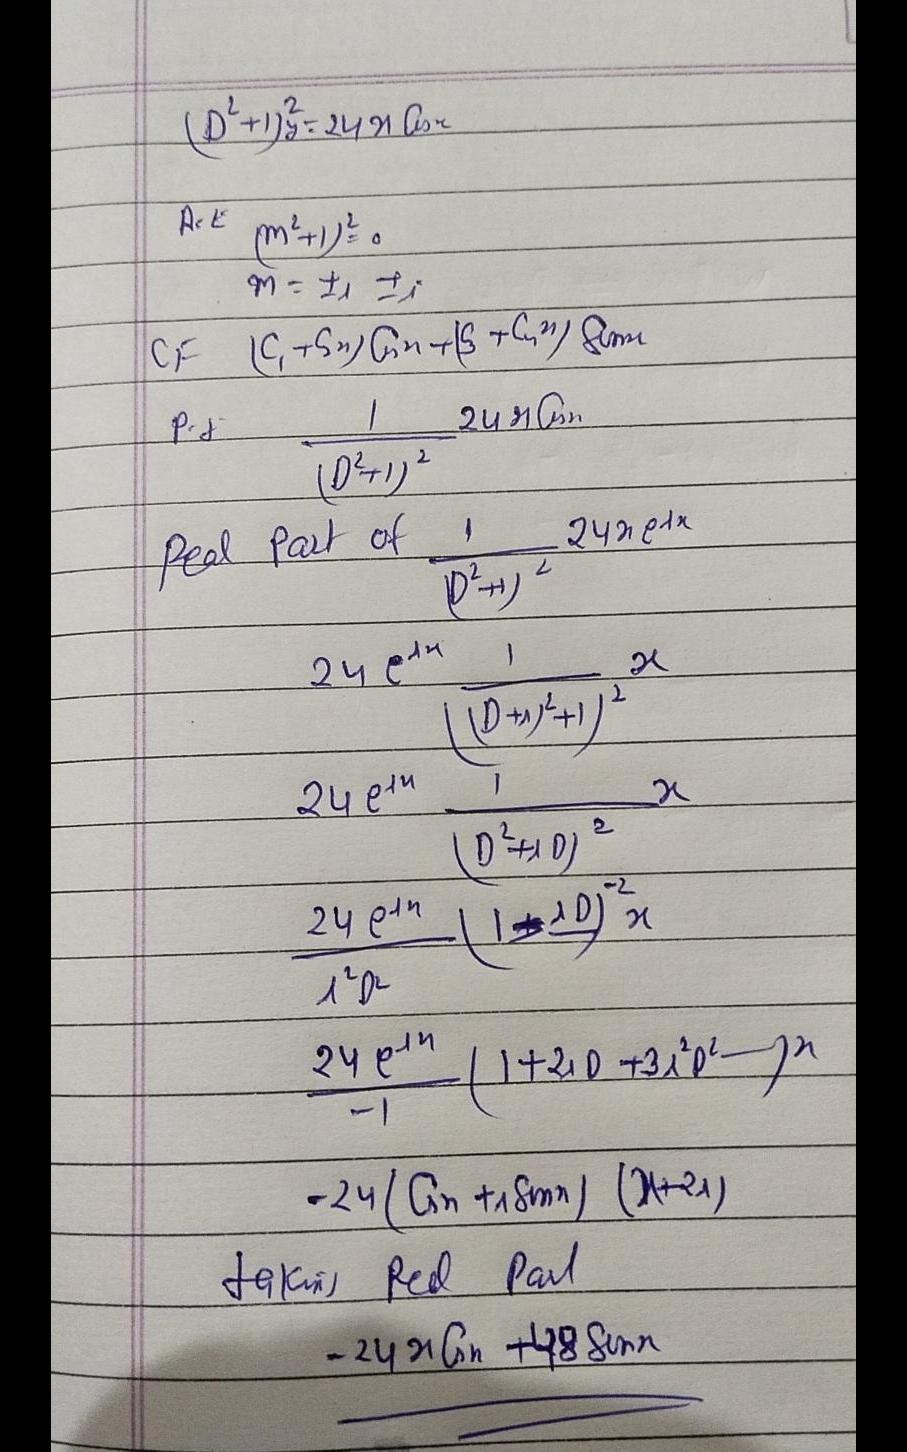 (D²+1)²y = 24x Cosx
A.E (m²+1)² = 0
m = ±i ±i
CF (C₁+C₂x) Cosx + (C₃+C₄x) Sinx
P.I 1/(D²+1)² 24x Cosx
Real Part of 1/(D²+1)² 24x e^ix
24 e^ix 1/((D+i)²+1)² x
24 e^ix 1/(D²+iD)² x
24 e^ix/i²D² (1 + iD)^-2 x
24 e^ix/-1 (1+2iD+3i²D² —) x
-24 (Cosx + i Sinx) (x+2i)
taking Real Part
-24x Cosx +48 Sinx